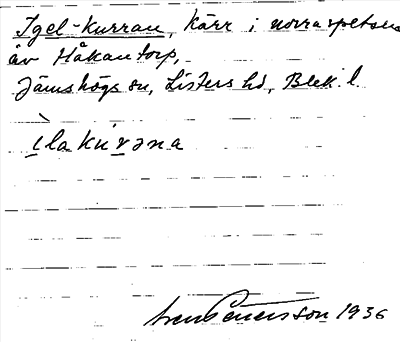 Igel-kurran, kärr i norra spetsen
av Håkantorp,
Jämshögs sn, Listers hd, Blek. l.
ìlakúrəna
Sven Benson 1936